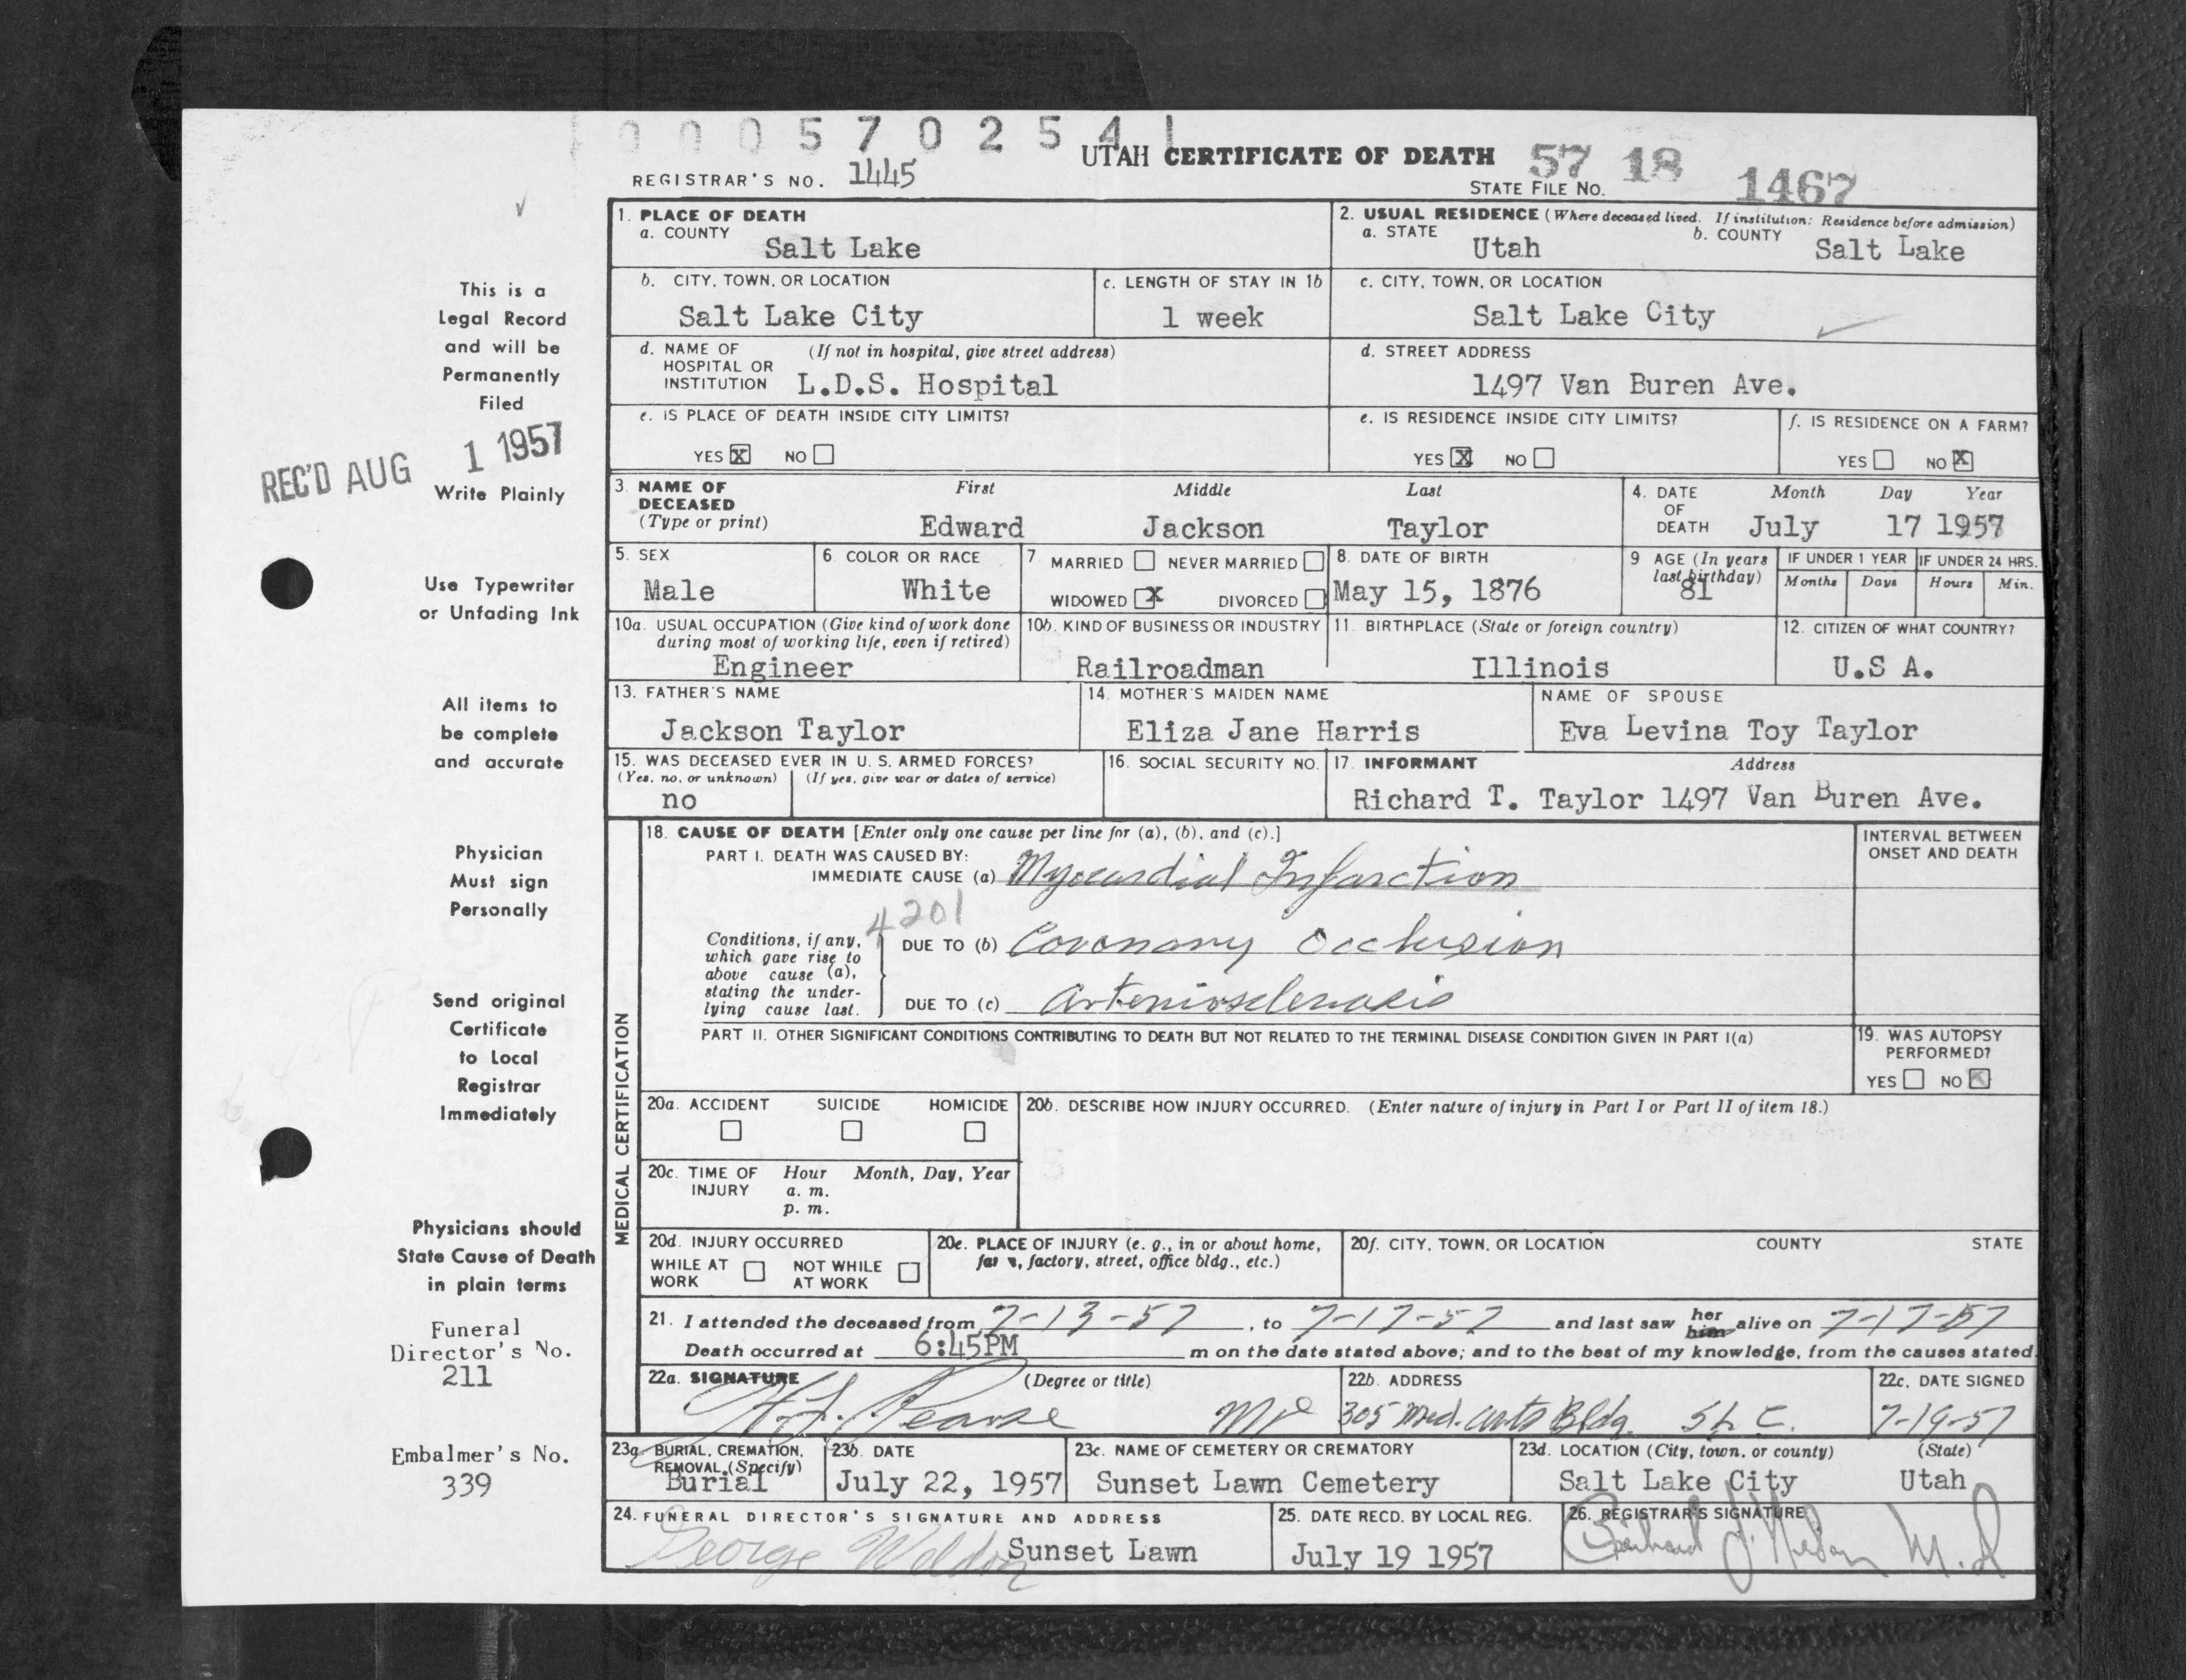 000570254
UTAH CERTIFICATE OF DEATH 57 18 1467
REGISTRAR'S NO. 1445
STATE FILE NO.
1. PLACE OF DEATH
a. COUNTY
Salt Lake
2. USUAL RESIDENCE (Where deceased lived. If institution: Residence before admission)
a. STATE Utah b. COUNTY Salt Lake
b. CITY, TOWN, OR LOCATION
Salt Lake City
c. LENGTH OF STAY IN 1b
1 week
c. CITY, TOWN, OR LOCATION
Salt Lake City
d. NAME OF HOSPITAL OR INSTITUTION (If not in hospital, give street address)
L.D.S. Hospital
d. STREET ADDRESS
1497 Van Buren Ave.
e. IS PLACE OF DEATH INSIDE CITY LIMITS?
YES X NO
e. IS RESIDENCE INSIDE CITY LIMITS?
YES X NO
f. IS RESIDENCE ON A FARM?
YES NO X
3. NAME OF DECEASED (Type or print)
First Middle Last
Edward Jackson Taylor
4. DATE OF DEATH Month Day Year
July 17 1957
5. SEX
Male
6 COLOR OR RACE
White
7 MARRIED NEVER MARRIED
WIDOWED X DIVORCED
8. DATE OF BIRTH
May 15, 1876
9 AGE (In years last birthday)
81
IF UNDER 1 YEAR
Months Days
IF UNDER 24 HRS.
Hours Min.
10a. USUAL OCCUPATION (Give kind of work done during most of working life, even if retired)
Engineer
10b. KIND OF BUSINESS OR INDUSTRY
Railroadman
11. BIRTHPLACE (State or foreign country)
Illinois
12. CITIZEN OF WHAT COUNTRY?
U.S A.
13. FATHER'S NAME
Jackson Taylor
14. MOTHER'S MAIDEN NAME
Eliza Jane Harris
NAME OF SPOUSE
Eva Levina Toy Taylor
15. WAS DECEASED EVER IN U. S. ARMED FORCES?
(Yes, no, or unknown) (If yes, give war or dates of service)
no
16. SOCIAL SECURITY NO.
17. INFORMANT Address
Richard T. Taylor 1497 Van Buren Ave.
MEDICAL CERTIFICATION
18. CAUSE OF DEATH [Enter only one cause per line for (a), (b), and (c).]
PART I. DEATH WAS CAUSED BY:
IMMEDIATE CAUSE (a) Myocardial Infarction
4201
Conditions, if any, which gave rise to above cause (a), stating the underlying cause last.
DUE TO (b) Coronary Occlusion
DUE TO (c) Arteriosclerosis
INTERVAL BETWEEN ONSET AND DEATH
PART II. OTHER SIGNIFICANT CONDITIONS CONTRIBUTING TO DEATH BUT NOT RELATED TO THE TERMINAL DISEASE CONDITION GIVEN IN PART I(a)
19. WAS AUTOPSY PERFORMED?
YES NO X
20a. ACCIDENT SUICIDE HOMICIDE
20b. DESCRIBE HOW INJURY OCCURRED. (Enter nature of injury in Part I or Part II of item 18.)
20c. TIME OF INJURY Hour Month, Day, Year
a. m.
p. m.
20d. INJURY OCCURRED
WHILE AT WORK NOT WHILE AT WORK
20e. PLACE OF INJURY (e. g., in or about home, farm, factory, street, office bldg., etc.)
20f. CITY, TOWN, OR LOCATION COUNTY STATE
21. I attended the deceased from 7-13-57, to 7-17-57 and last saw her him alive on 7-17-57
Death occurred at 6:45PM m on the date stated above; and to the best of my knowledge, from the causes stated.
22a. SIGNATURE (Degree or title)
Pearse MD
22b. ADDRESS
305 Med. Arts Bldg. SLC.
22c. DATE SIGNED
7-19-57
23a. BURIAL, CREMATION, REMOVAL (Specify)
Burial
23b. DATE
July 22, 1957
23c. NAME OF CEMETERY OR CREMATORY
Sunset Lawn Cemetery
23d. LOCATION (City, town, or county) (State)
Salt Lake City Utah
24. FUNERAL DIRECTOR'S SIGNATURE AND ADDRESS
George Weldon Sunset Lawn
25. DATE RECD. BY LOCAL REG.
July 19 1957
26. REGISTRAR'S SIGNATURE
M.D
This is a
Legal Record
and will be
Permanently
Filed
REC'D AUG 1 1957
Write Plainly
Use Typewriter
or Unfading Ink
All items to
be complete
and accurate
Physician
Must sign
Personally
Send original
Certificate
to Local
Registrar
Immediately
Physicians should
State Cause of Death
in plain terms
Funeral
Director's No.
211
Embalmer's No.
339